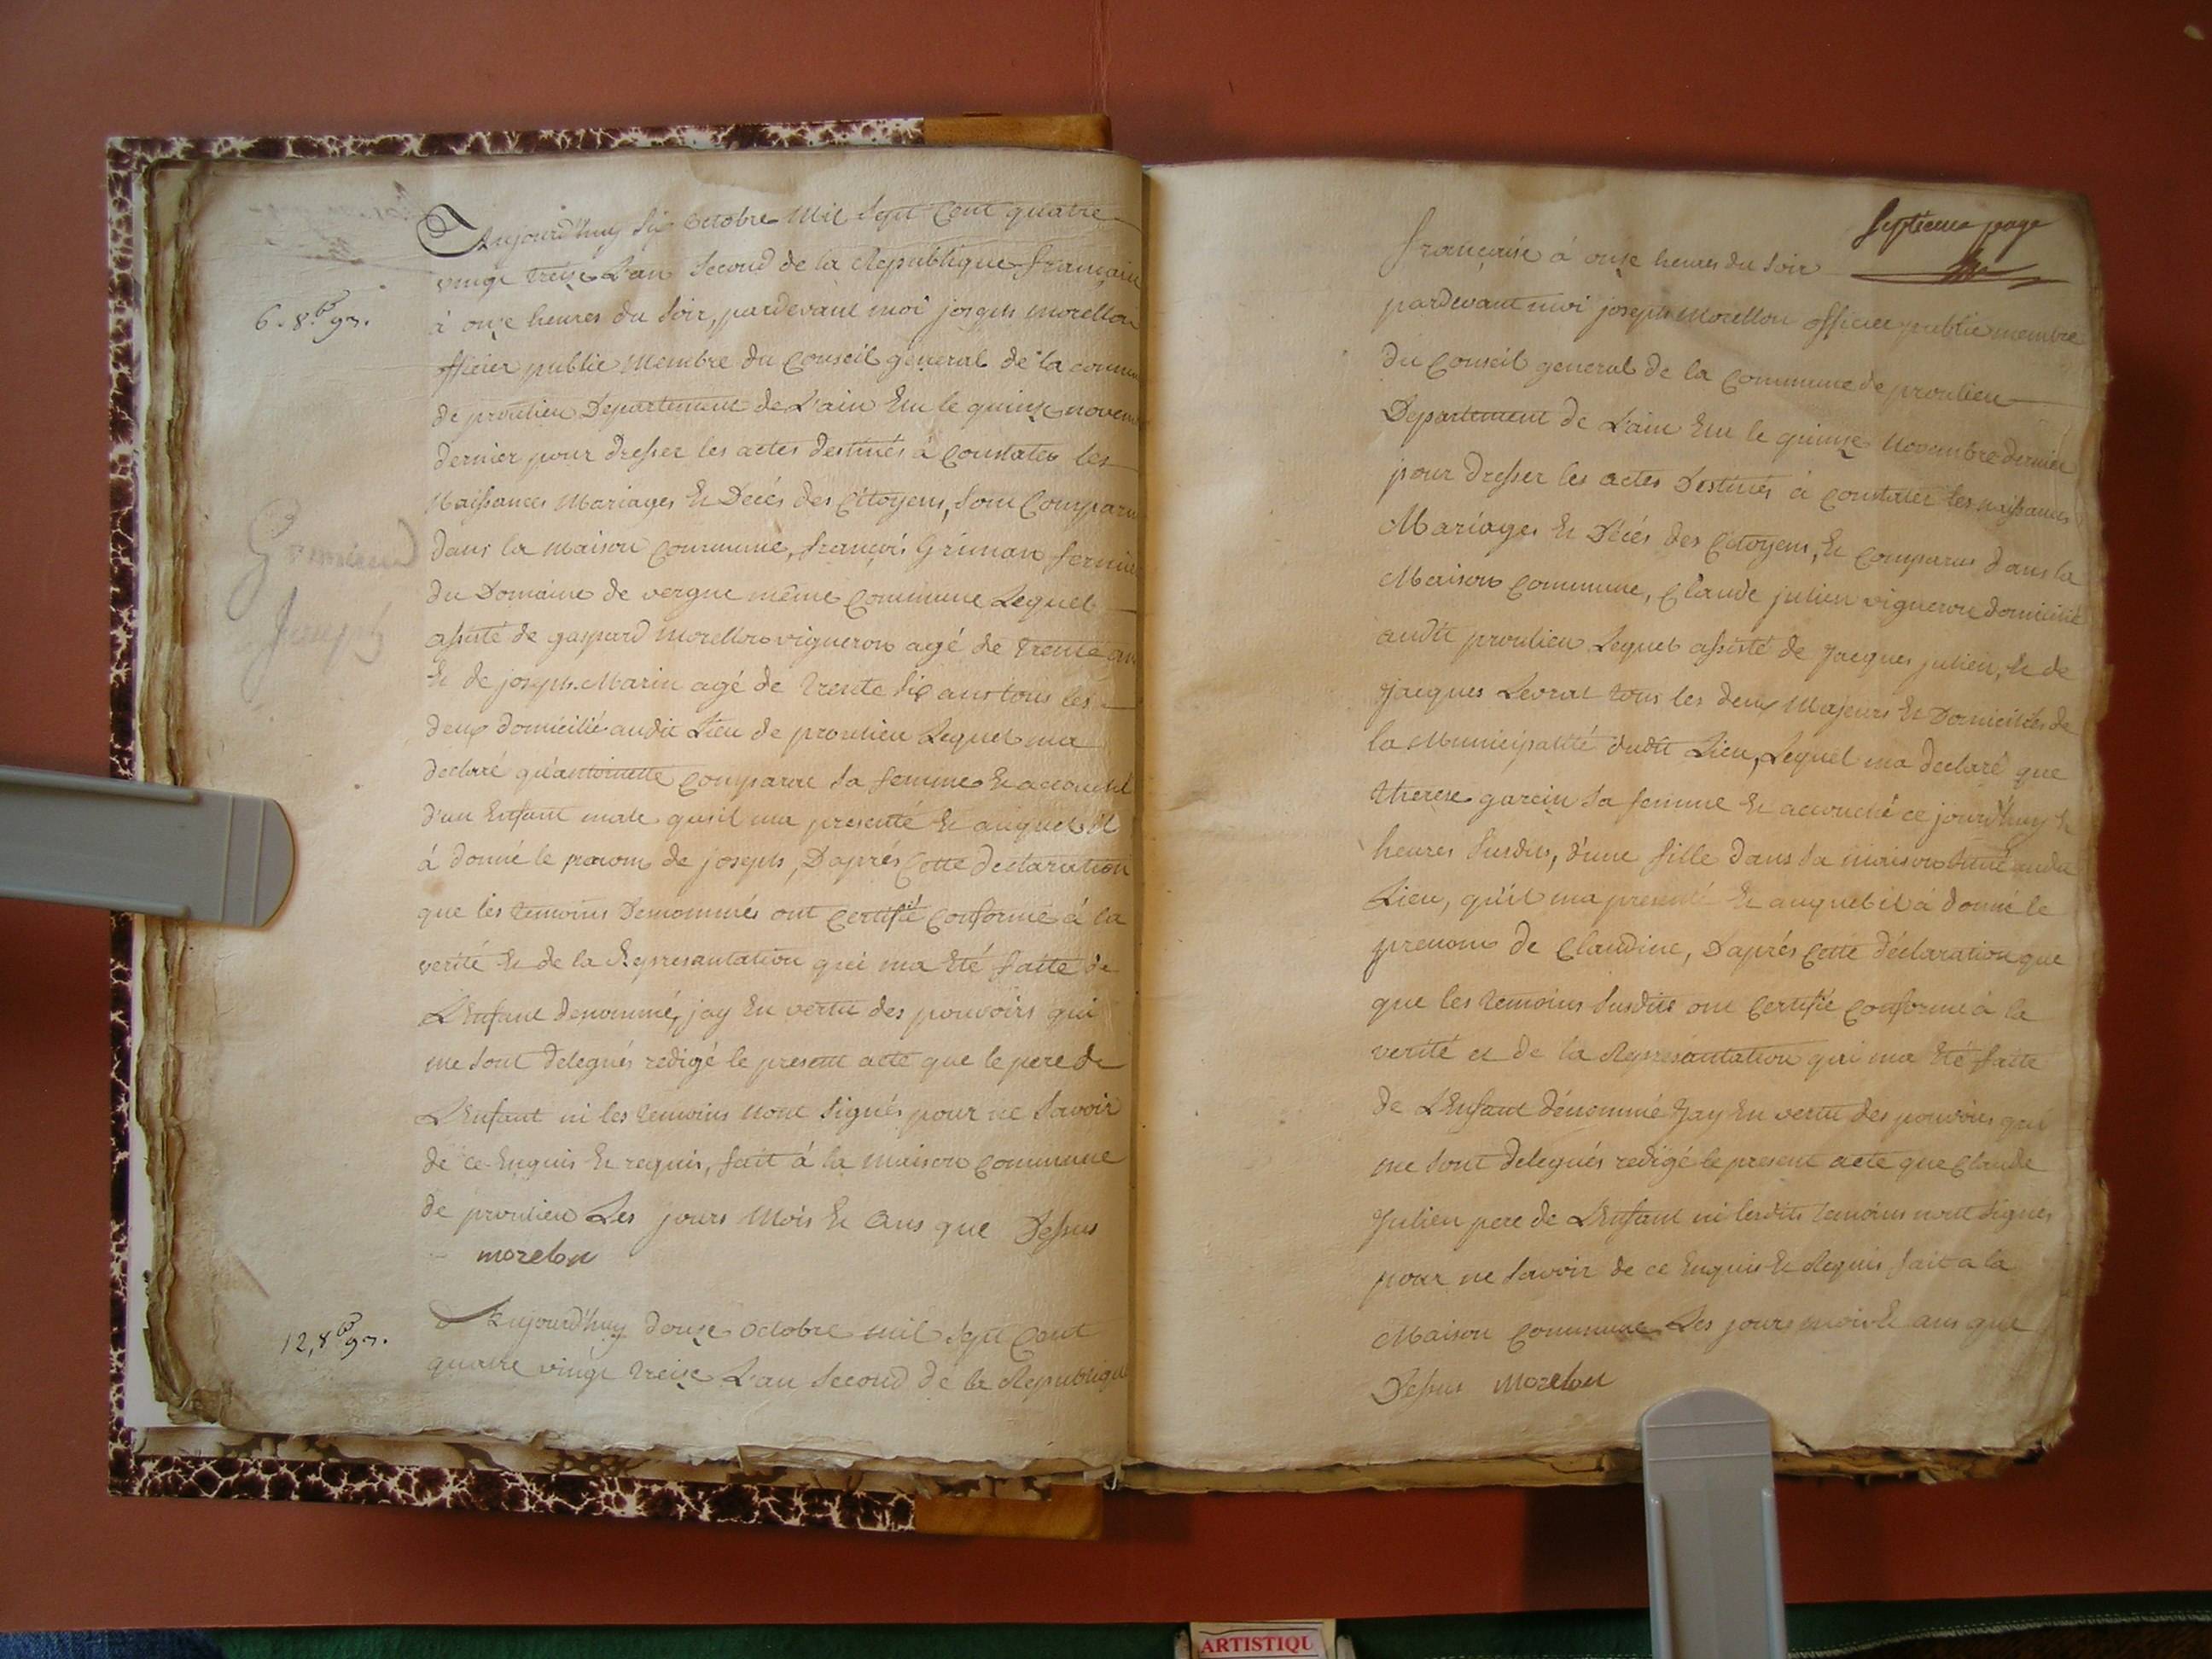 Aujourd'huy six octobre mil sept cent quatre
vingt treize L'an second de la Republique française
6. 8.bre 93.
à onze heures du soir, pardevant moi joseph morellon
officier public membre du Conseil general de la commune
de proulieu Departement de L'ain Elu le quinze novem
dernier pour dresser les actes destinés à Constater les
Naissances Mariages Et Décés des Citoyens, sont Comparu
dans la maison Commune, françois Grinan fermier
du Domaine de vergne même Commune Lequel
assisté de gaspard morellon vigneron agé de trente ans
Et de joseph Marin agé de trente six ans tous les
deux domicilié audit Lieu de proulieu Lequel ma
declaré qu'antoinette sa femme Et accouché
d'un Enfant male quil ma presenté Et auquel il
à donné le prenom de joseph, D'aprés Cette declaration
que les temoins Denommés ont Certifié Conforme à la
verité Et de la Represantation qui ma Eté faite de
L'Enfant denommé, jay En vertu des pouvoirs qui
me sont delegués redigé le present acte que le pere de
L'Enfant ni les temoins nont signés pour ne savoir
de ce Enquis Et requis, fait à la maison Commune
de proulieu Les jours Mois Et ans que Dessus
morelon
Joseph
12, 8.bre 93.
Aujourd'huy douze octobre mil sept Cent
quatre vingt treize L'an second de la Republique
Septieme page
française à onze heures du soir
pardevant moi joseph morellon officier public membre
du Conseil general de la Commune de proulieu
Departement de L'ain Elu le quinze novembre dernier
pour dresser les actes Destinés à Constater les naissances
Mariages Et Décés des Citoyens, Et comparus dans la
Maison Commune, Claude julien vigneron domicilié
audit proulieu Lequel assisté de Jacques julien, Et de
Jacques Levrat tous les deux Majeurs Et Domiciliés de
la Municipalité dudit Lieu, Lequel ma declaré que
therese garcin sa femme Et accouché ce jourd'huy Et
heures susdites, d'une fille dans sa maison situé audit
Lieu, qu'il ma presenté Et auquel il à donné le
prenom de Claudine, D'aprés Cette déclaration que
que les temoins susdits ont Certifié Conforme à la
verité et de la Represantation qui ma Eté faite
de L'Enfant dénommé Jay En vertu des pouvoirs qui
me sont delegués redigé le present acte que Claude
Julien pere de L'Enfant ni lesdits temoins nont signés
pour ne savoir de ce Enquis Et Requis, fait a la
Maison Commune Les jours mois Et ans que
Dessus morelon
ARTISTIQU